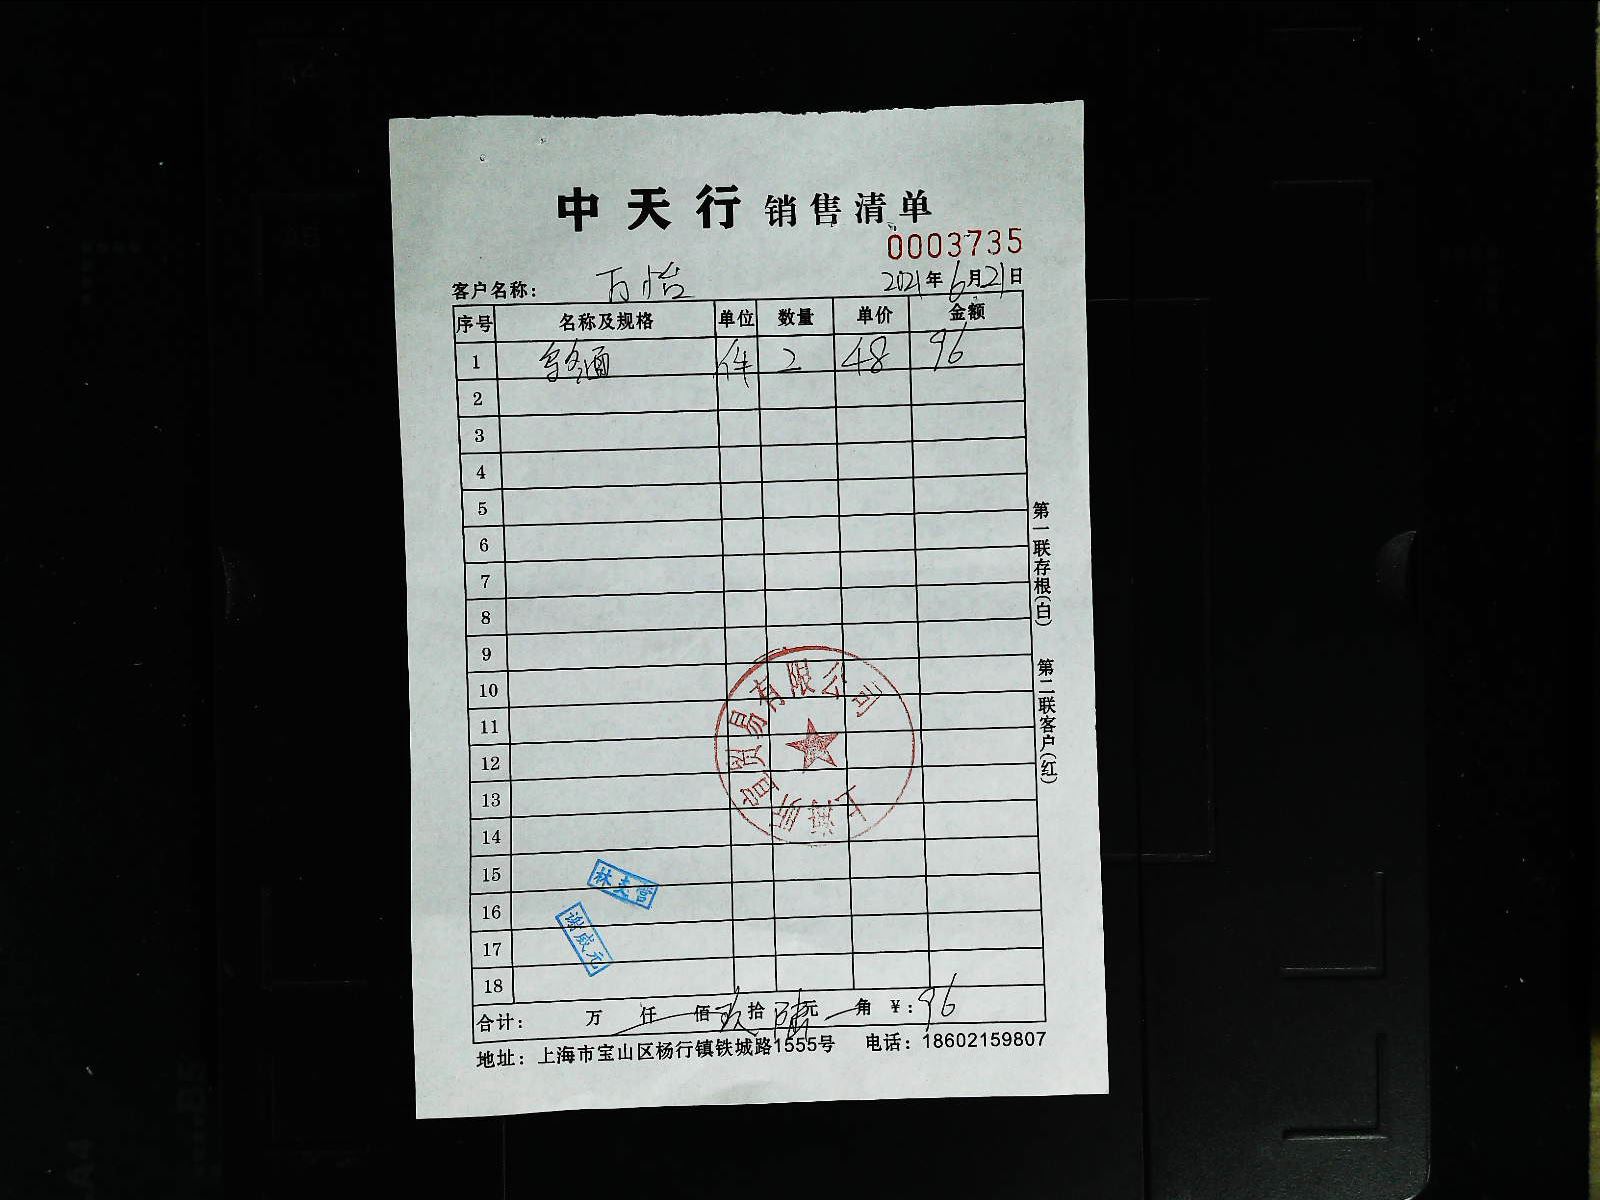 中天行 销售清单
0003735
客户名称： 万怡 2021年6月21日
序号 名称及规格 单位 数量 单价 金额
1 件 2 48 96
2
3
4
5
6
7
8
9
10
11
12
13
14
15
16
17
18
合计： 万 仟 佰 玖拾 陆元 角 ¥：96
地址：上海市宝山区杨行镇铁城路1555号 电话：18602159807
第一联存根（白） 第二联客户（红）
上海 贸易有限公司
谢威元